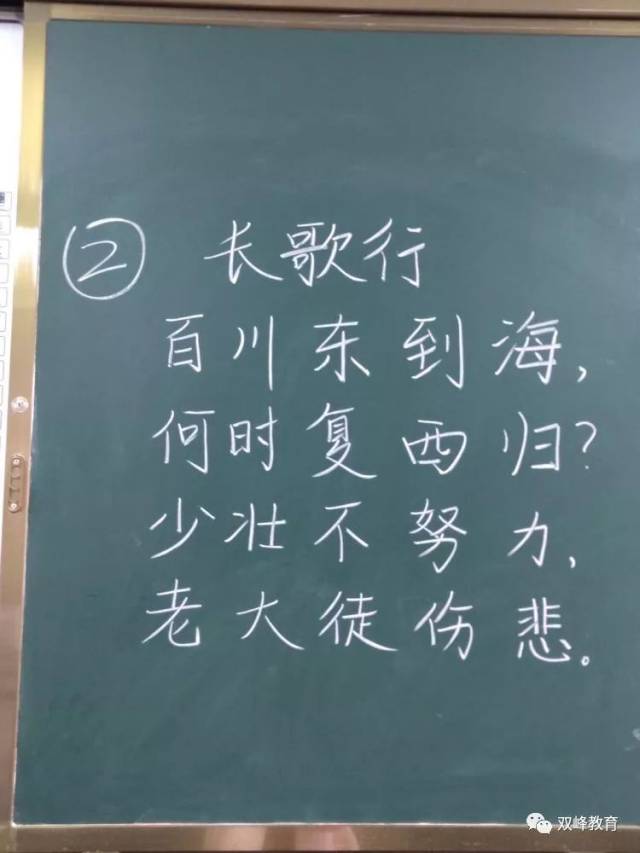 ② 长歌行
百川东到海,
何时复西归?
少壮不努力,
老大徒伤悲。
双峰教育